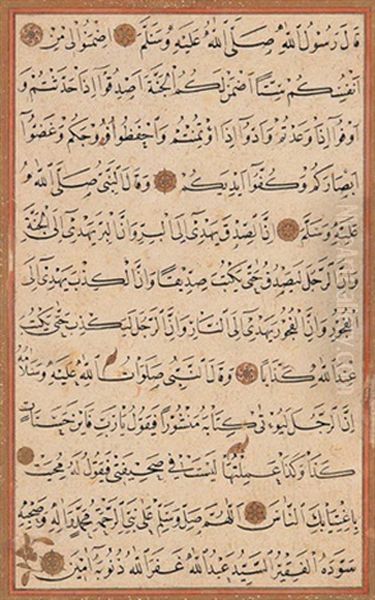 قَالَ رَسُولُ اللهِ صَلَّى اللهُ عَلَيْهِ وَسَلَّمَ اِضْمَنُوا لِى مِنْ
اَنْفُسِكُمْ سِتًّا اَضْمَنْ لَكُمُ الْجَنَّةَ اُصْدُقُوا اِذَا حَدَّثْتُمْ وَ
اَوْفُوا اِذَا وَعَدْتُمْ وَاَدُّوا اِذَا اؤْتُمِنْتُمْ وَاحْفَظُوا فُرُوجَكُمْ وَغُضُّوا
اَبْصَارَكُمْ وَكُفُّوا اَيْدِيَكُمْ وَقَالَ النَّبِىُّ صَلَّى اللهُ
عَلَيْهِ وَسَلَّمَ اِنَّ الصِّدْقَ يَهْدِى اِلَى الْبِرِّ وَاِنَّ الْبِرَّ يَهْدِى اِلَى الْجَنَّةِ
وَاِنَّ الرَّجُلَ لَيَصْدُقُ حَتّٰى يُكْتَبَ صِدِّيقًا وَاِنَّ الْكَذِبَ يَهْدِى اِلَى
الْفُجُورِ وَاِنَّ الْفُجُورَ يَهْدِى اِلَى النَّارِ وَاِنَّ الرَّجُلَ لَيَكْذِبُ حَتّٰى يُكْتَبَ
عِنْدَ اللهِ كَذَّابًا وَقَالَ النَّبِىُّ صَلَوَاتُ اللهِ عَلَيْهِ وَسَلَامُهُ
اِنَّ الرَّجُلَ لَيُؤْتٰى كِتَابَهُ مَنْشُورًا فَيَقُولُ يَارَبِّ فَاَيْنَ حَسَنَاتُ
كَذَا وَكَذَا عَمِلْتُهَا لَيْسَتْ فِى صَحِيفَتِى فَيَقُولُ لَهُ مُحِيَتْ
بِاغْتِيَابِكَ النَّاسَ اَللّٰهُمَّ صَلِّ وَسَلِّمْ عَلٰى نَبِىِّ الرَّحْمَةِ مُحَمَّدٍ وَاٰلِهِ وَصَحْبِهِ
سَوَّدَهُ الْفَقِيرُ السَّيِّدُ عَبْدُ اللهِ غَفَرَ اللهُ ذُنُوبَهُ اٰمِينَ